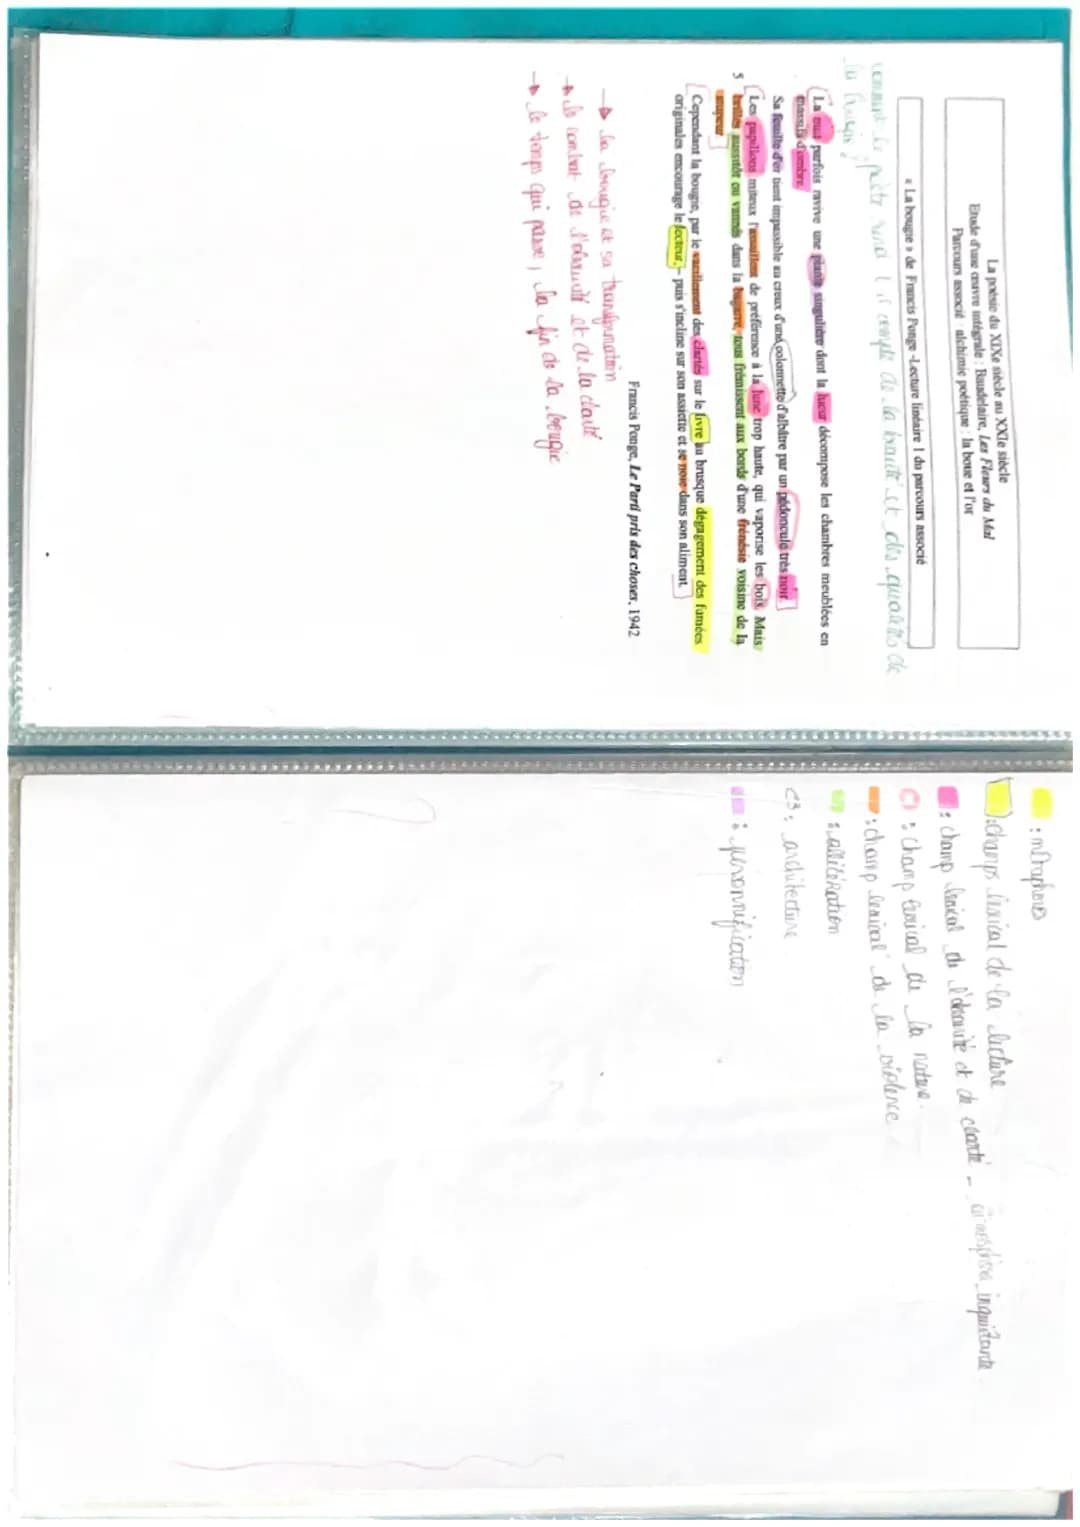 La poésie du XIXe siècle au XXIe siècle
Etude d'une œuvre intégrale : Baudelaire, Les Fleurs du Mal
Parcours associé : alchimie poétique : la boue et l'or
« La bougie » de Francis Ponge -Lecture linéaire 1 du parcours associé
comment le poète rend t-il compte de la beauté et des qualités de
la bougie ?
La nuit parfois ravive une plante singulière dont la lueur décompose les chambres meublées en
massifs d'ombre.
Sa feuille d'or tient impassible au creux d'une colonnette d'albâtre par un pédoncule très noir.
Les papillons miteux l'assaillent de préférence à la lune trop haute, qui vaporise les bois. Mais
5 brûlés aussitôt ou vannés dans la bagarre, tous frémissent aux bords d'une frénésie voisine de la
stupeur
Cependant la bougie, par le vacillement des clartés sur le livre au brusque dégagement des fumées
originales encourage le lecteur, – puis s'incline sur son assiette et se noie dans son aliment.
Francis Ponge, Le Parti pris des choses, 1942
→ la bougie et sa transformation
→ le combat de l'obscurité et de la clarté
→ le temps qui passe, la fin de la bougie
: métaphores
: champs lexical de la lecture
: champ lexical de l'obscurité et de clarté - atmosphère inquiétante.
: champ lexical de la nature.
: champ lexical de la violence
: allitération
: architecture
: personnification